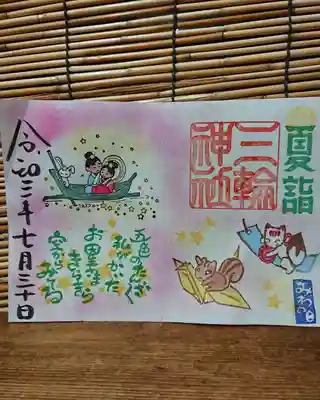 夏詣
三輪
神社
五色のたんざく
私がかいた
お星さま
きらきら
空からみてる
令和二年七月三十日